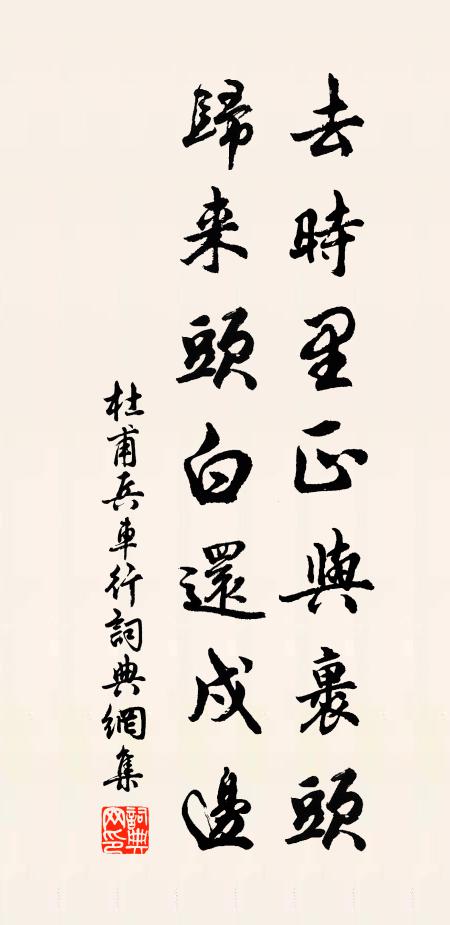 去時里正與裹頭
歸来頭白還戍邊
杜甫兵車行詞典網集
詞典网印